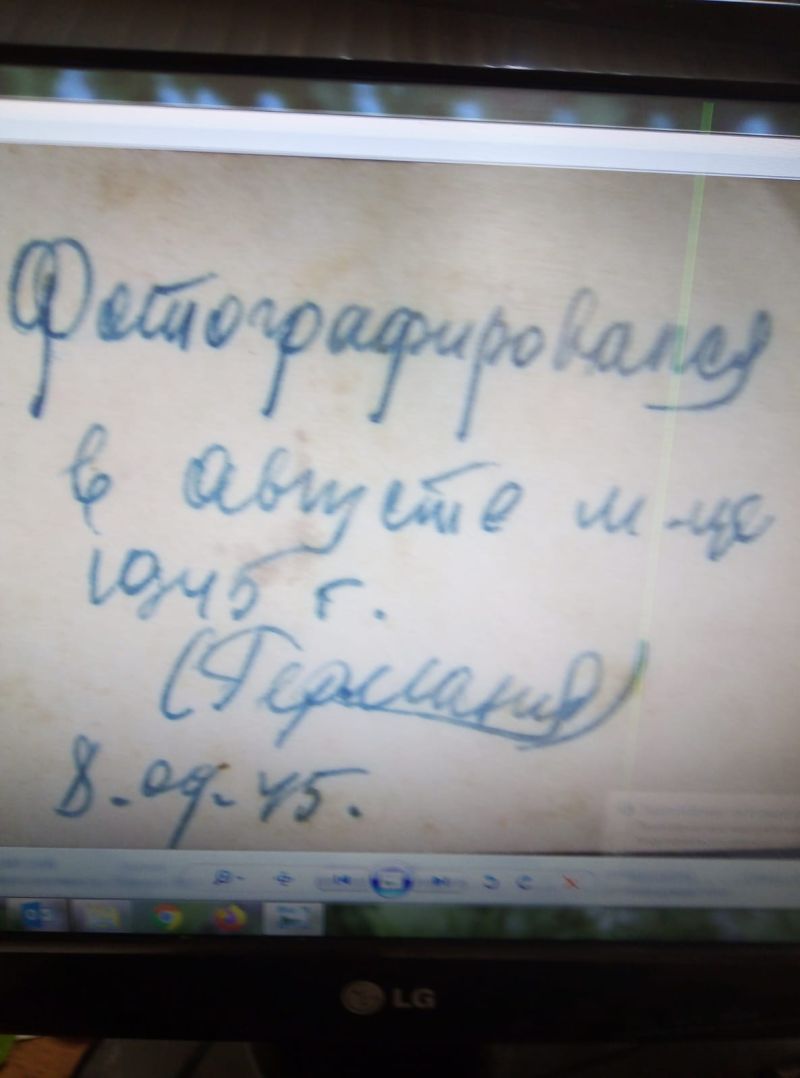 Фотографировался
в августе м-це
1945 г.
(Германия)
8.09.45.
LG